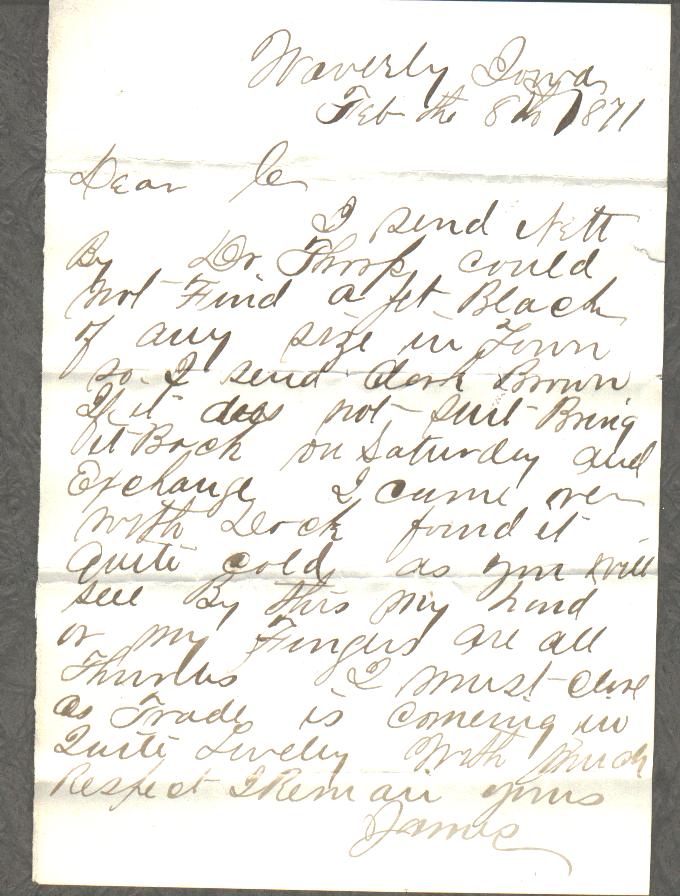 Waverly Iowa
Feb the 8th 1871
Dear
I send Nett
By Dr Throp could
not Find a Jet Black
of any size in Town
so I send dark Brown
If it does not suit Bring
it Back on Saturday and
Exchange I came over
with Dock found it
quite cold as you will
see By this my hand
or my Fingers are all
Thumbs I must close
as Trade is comeing in
Quite Liveley With Much
Respect I Remain yours
James